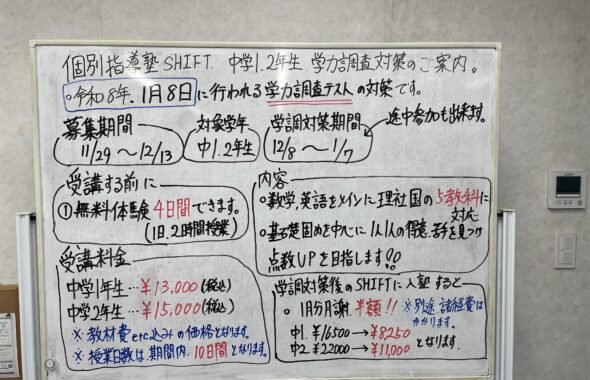 個別指導塾SHIFT. 中学1.2年生 学力調査対策のご案内。
○令和8年.1月8日に行われる学力調査テストの対策です。
募集期間
11/29 〜 12/13
対象学年
中1.2年生
学調対策期間
12/8 〜 1/7
途中参加も出来ます.
受講する前に
① 無料体験 4日間できます。
(1日.2時間授業)
内容
○数学.英語をメインに理社国の5教科に
対応
○基礎固めを中心に1人1人の得意.苦手を見つけ
点数UPを目指します!!
受講料金
中学1年生…¥13,000(税込)
中学2年生…¥15,000(税込)
※ 教材費etc込みの価格となります。
※ 授業日数は期間内.10日間となります。
学調対策後のSHIFTに入塾すると
○1月分月謝.半額!!
※別途.諸経費は
かかります。
中1.¥16500→¥8,250
中2.¥22000→¥11,000
となります.